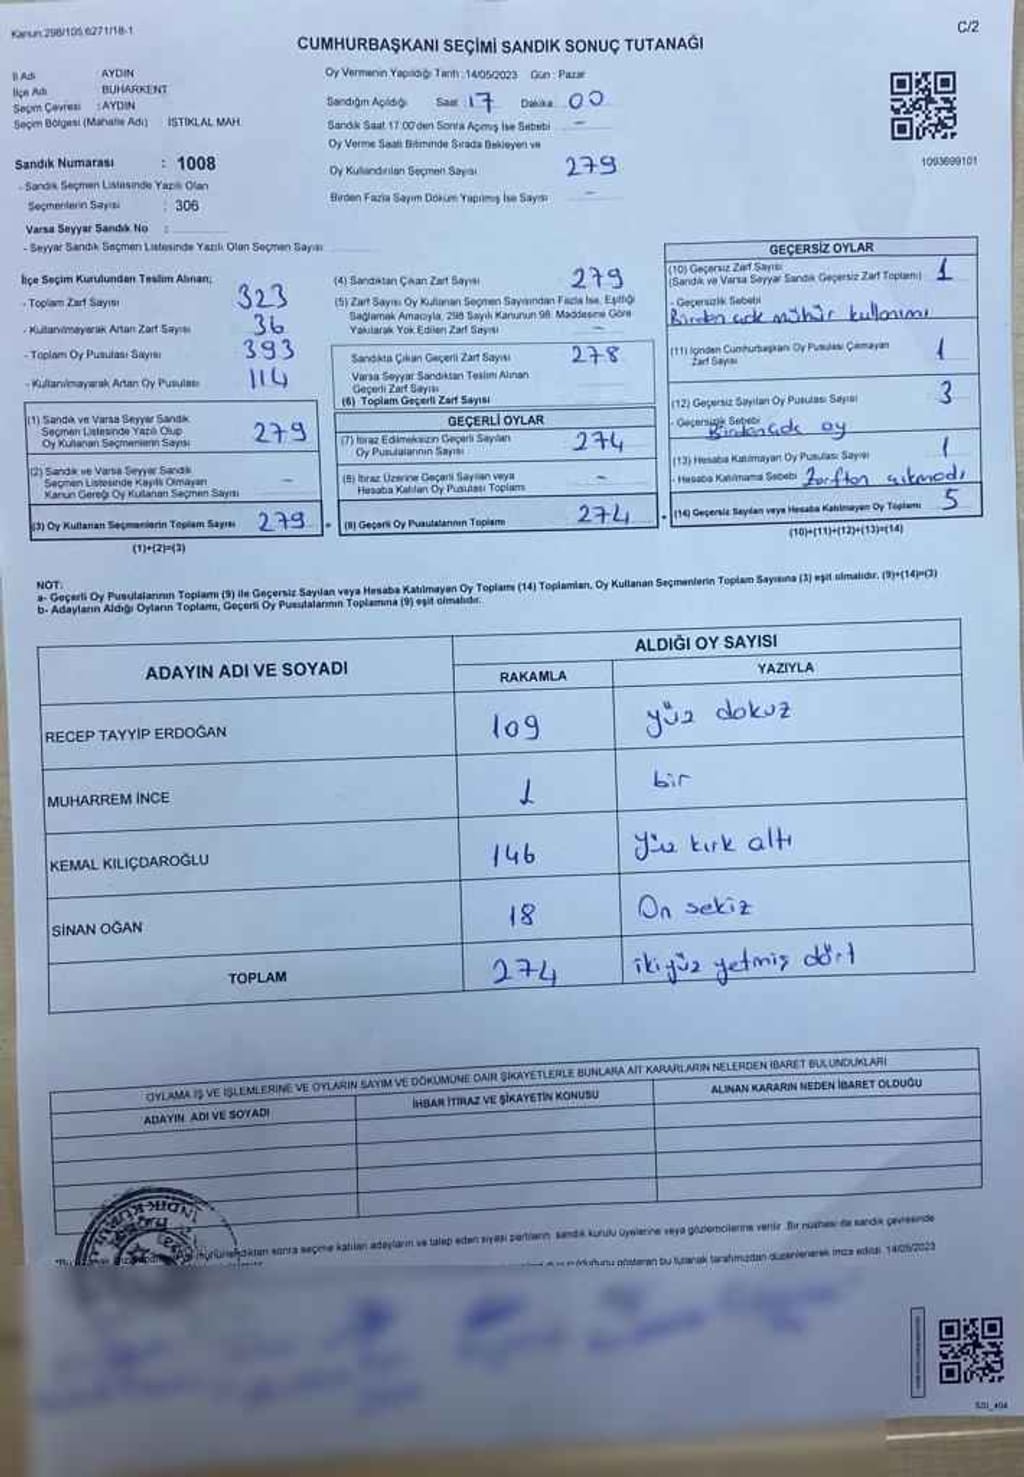 Kanun:298/105,6271/18-1
C/2
CUMHURBAŞKANI SEÇİMİ SANDIK SONUÇ TUTANAĞI
İl Adı : AYDIN
İlçe Adı : BUHARKENT
Seçim Çevresi : AYDIN
Seçim Bölgesi (Mahalle Adı) : İSTİKLAL MAH.
Sandık Numarası : 1008
- Sandık Seçmen Listesinde Yazılı Olan
Seçmenlerin Sayısı : 306
Varsa Seyyar Sandık No :
- Seyyar Sandık Seçmen Listesinde Yazılı Olan Seçmen Sayısı
Oy Vermenin Yapıldığı Tarih: 14/05/2023 Gün: Pazar
Sandığın Açıldığı Saat 17 Dakika 00
Sandık Saat 17:00'den Sonra Açılmış İse Sebebi —
Oy Verme Saati Bitiminde Sırada Bekleyen ve
Oy Kullandırılan Seçmen Sayısı 279
Birden Fazla Sayım Döküm Yapılmış İse Sayısı —
1093699101
İlçe Seçim Kurulundan Teslim Alınan;
- Toplam Zarf Sayısı 323
- Kullanılmayarak Artan Zarf Sayısı 36
- Toplam Oy Pusulası Sayısı 393
- Kullanılmayarak Artan Oy Pusulası 114
(1) Sandık ve Varsa Seyyar Sandık
Seçmen Listesinde Yazılı Olup
Oy Kullanan Seçmenlerin Sayısı 279
(2) Sandık ve Varsa Seyyar Sandık
Seçmen Listesinde Kayıtlı Olmayan
Kanun Gereği Oy Kullanan Seçmen Sayısı —
(3) Oy Kullanan Seçmenlerin Toplam Sayısı 279
(1)+(2)=(3)
(4) Sandıktan Çıkan Zarf Sayısı 279
(5) Zarf Sayısı Oy Kullanan Seçmen Sayısından Fazla İse, Eşitliği
Sağlamak Amacıyla, 298 Sayılı Kanunun 98. Maddesine Göre
Yakılarak Yok Edilen Zarf Sayısı —
Sandıkta Çıkan Geçerli Zarf Sayısı 278
Varsa Seyyar Sandıktan Teslim Alınan
Geçerli Zarf Sayısı
(6) Toplam Geçerli Zarf Sayısı
GEÇERLİ OYLAR
(7) İtiraz Edilmeksizin Geçerli Sayılan
Oy Pusulalarının Sayısı 274
(8) İtiraz Üzerine Geçerli Sayılan veya
Hesaba Katılan Oy Pusulası Toplamı —
(9) Geçerli Oy Pusulalarının Toplamı 274
GEÇERSİZ OYLAR
(10) Geçersiz Zarf Sayısı
(Sandık ve Varsa Seyyar Sandık Geçersiz Zarf Toplamı) 1
- Geçersizlik Sebebi
Birden çok mühür kullanımı
(11) İçinden Cumhurbaşkanı Oy Pusulası Çıkmayan
Zarf Sayısı 1
(12) Geçersiz Sayılan Oy Pusulası Sayısı 3
- Geçersizlik Sebebi
Birden çok oy
(13) Hesaba Katılmayan Oy Pusulası Sayısı 1
- Hesaba Katılmama Sebebi Zarftan çıkmadı
(14) Geçersiz Sayılan veya Hesaba Katılmayan Oy Toplamı 5
(10)+(11)+(12)+(13)=(14)
NOT:
a- Geçerli Oy Pusulalarının Toplamı (9) ile Geçersiz Sayılan veya Hesaba Katılmayan Oy Toplamı (14) Toplamları, Oy Kullanan Seçmenlerin Toplam Sayısına (3) eşit olmalıdır. (9)+(14)=(3)
b- Adayların Aldığı Oyların Toplamı, Geçerli Oy Pusulalarının Toplamına (9) eşit olmalıdır.
ADAYIN ADI VE SOYADI
ALDIĞI OY SAYISI
RAKAMLA YAZIYLA
RECEP TAYYİP ERDOĞAN 109 yüz dokuz
MUHARREM İNCE 1 bir
KEMAL KILIÇDAROĞLU 146 yüz kırk altı
SİNAN OĞAN 18 On sekiz
TOPLAM 274 ikiyüz yetmiş dört
OYLAMA İŞ VE İŞLEMLERİNE VE OYLARIN SAYIM VE DÖKÜMÜNE DAİR ŞİKAYETLERLE BUNLARA AİT KARARLARIN NELERDEN İBARET BULUNDUKLARI
ADAYIN ADI VE SOYADI İHBAR İTİRAZ VE ŞİKAYETİN KONUSU ALINAN KARARIN NEDEN İBARET OLDUĞU
sonra seçime katılan adayların ve talep eden siyasi partilerin sandık kurulu üyelerine veya gözlemcilerine verilir. Bir nüshası da sandık çevresinde
gösteren bu tutanak tarafımızdan düzenlenerek imza edildi. 14/05/2023